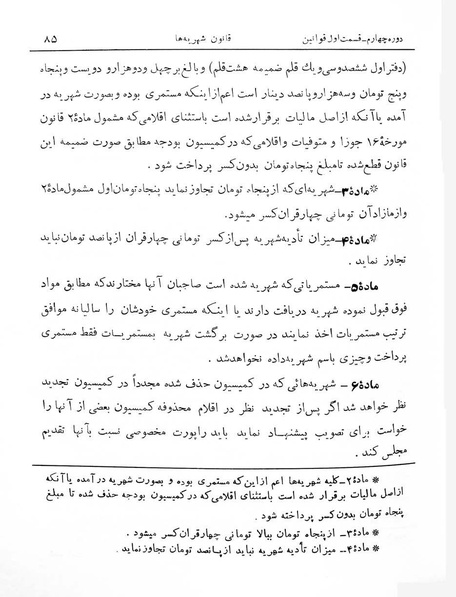 دوره چهارم ــ قسمت اول قوانین قانون شهریه‌ها ۸۵
(دفتر اول ششصدوسی‌ویك قلم ضمیمه هشت‌قلم) و بالغ بر چهل‌ و دو هزار و دویست و پنجاه
و پنج تومان و سه‌ هزار و پانصد دینار است اعم از اینکه مستمری بوده و بصورت شهریه در
آمده یا آنکه از اصل مالیات برقرار شده است باستثنای اقلامی که مشمول مادهٔ ۲ قانون
مورخهٔ ۱۶ جوزا و متوفیات و اقلامی که در کمیسیون بودجه مطابق صورت ضمیمه این
قانون قطع شده تا مبلغ پنجاه تومان بدون کسر پرداخت شود .
*مادهٔ ۳ــ شهریه‌ای که از پنجاه تومان تجاوز نماید پنجاه تومان اول مشمول مادهٔ ۲
و از مازاد آن تومانی چهار قران کسر میشود.
*مادهٔ ۴ــ میزان تأدیه شهریه پس از کسر تومانی چهار قران از پانصد تومان نباید
تجاوز نماید .
مادهٔ ۵ــ مستمریاتی که شهریه شده است صاحبان آنها مختارند که مطابق مواد
فوق قبول نموده شهریه دریافت دارند یا اینکه مستمری خودشان را سالیانه موافق
ترتیب مستمریات اخذ نمایند در صورت برگشت شهریه بمستمریات فقط مستمری
پرداخت و چیزی باسم شهریه داده نخواهد شد .
مادهٔ ۶ ــ شهریه‌هائی که در کمیسیون حذف شده مجدداً در کمیسیون تجدید
نظر خواهد شد اگر پس از تجدید نظر در اقلام محذوفه کمیسیون بعضی از آنها را
خواست برای تصویب پیشنهاد نماید باید راپورت مخصوصی نسبت بآنها تقدیم
مجلس کند .
* مادهٔ ۲ــ کلیه شهریه‌ها اعم از این که مستمری بوده و بصورت شهریه در آمده یا آنکه
از اصل مالیات برقرار شده است باستثنای اقلامی که در کمیسیون بودجه حذف شده تا مبلغ
پنجاه تومان بدون کسر پرداخته شود .
* مادهٔ ۳ــ از پنجاه تومان ببالا تومانی چهار قران کسر میشود .
* مادهٔ ۴ــ میزان تأدیه شهریه نباید از پانصد تومان تجاوز نماید.